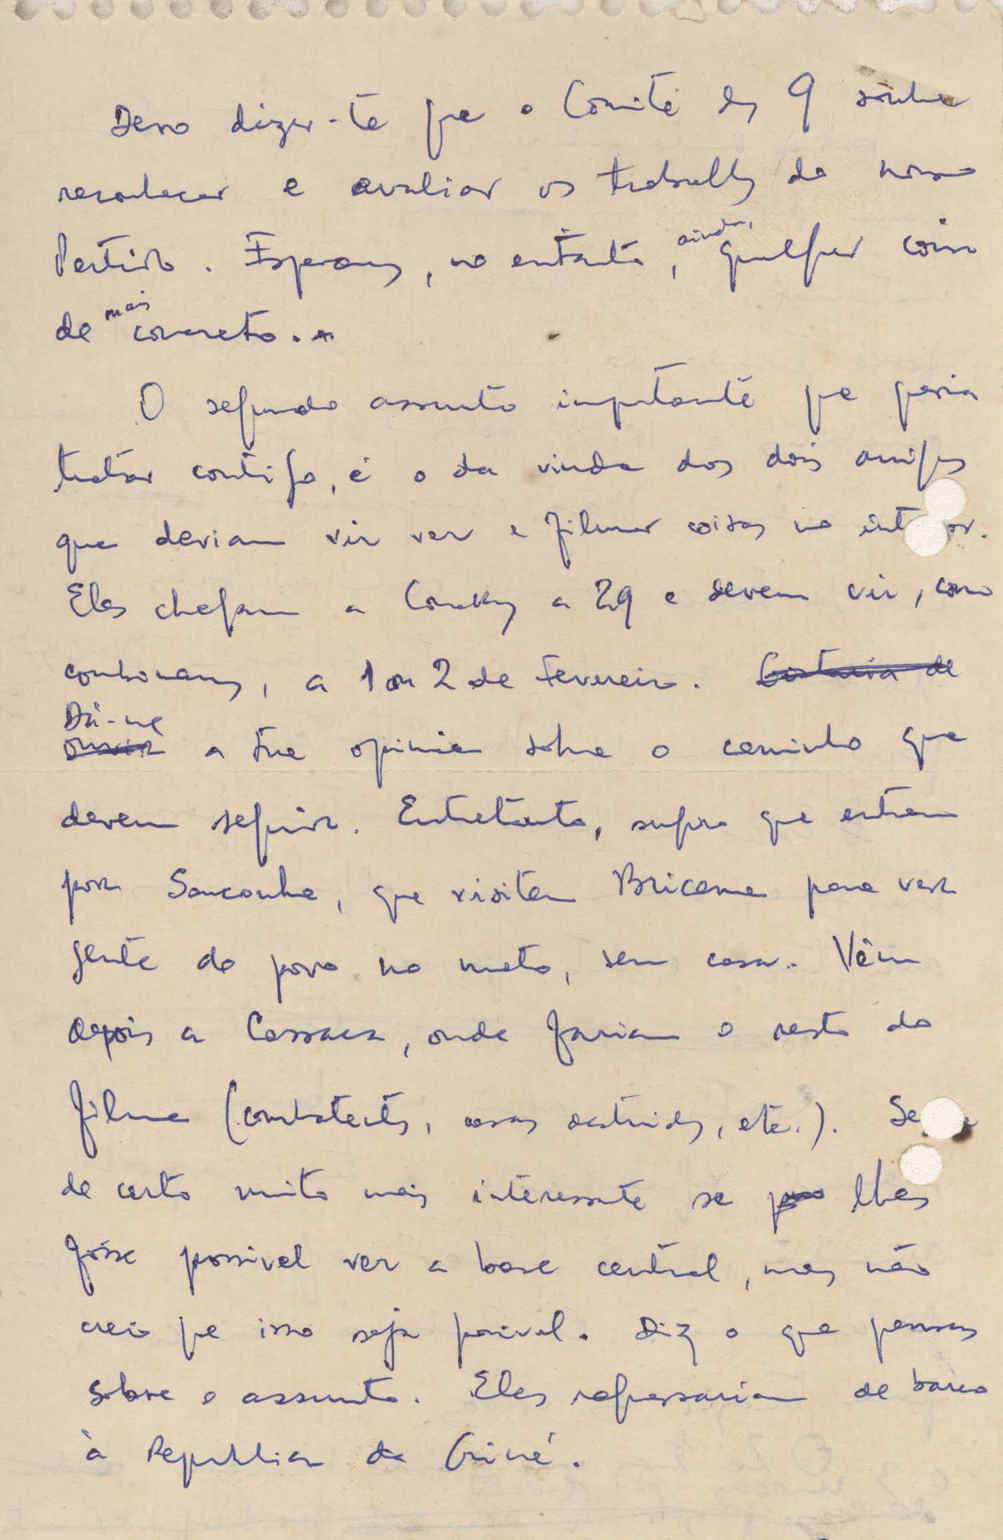 Devo dizer-te que o Comité dos 9 soube
reconhecer e avaliar os trabalhos do nosso
Partido. Esperamos, no entanto, ainda, qualquer coisa
de mais concreto.
O segundo assunto importante que queria
tratar contigo, é o da vinda dos dois amigos
que deviam vir ver e filmar coisas no interior.
Eles chegam a Conakry a 29 e devem vir, como
combinamos, a 1 ou 2 de Fevereiro. Gostaria de
ouvir Dá-me a tua opinião sobre o caminho que
devem seguir. Entretanto, sugiro que entrem
por Sanconha, que visitem Bricama para ver
gente do povo no mato, sem casa. Vêm
depois a Cassaca, onde fariam o resto do
filme (combatentes, casas destruídas, etc.). Seria
de certo muito mais interessante se lhes
fôsse possivel ver a base central, mas não
creio que isso seja possivel. Diz o que pensas
sobre o assunto. Eles regressariam de barco
à Republica da Guiné.